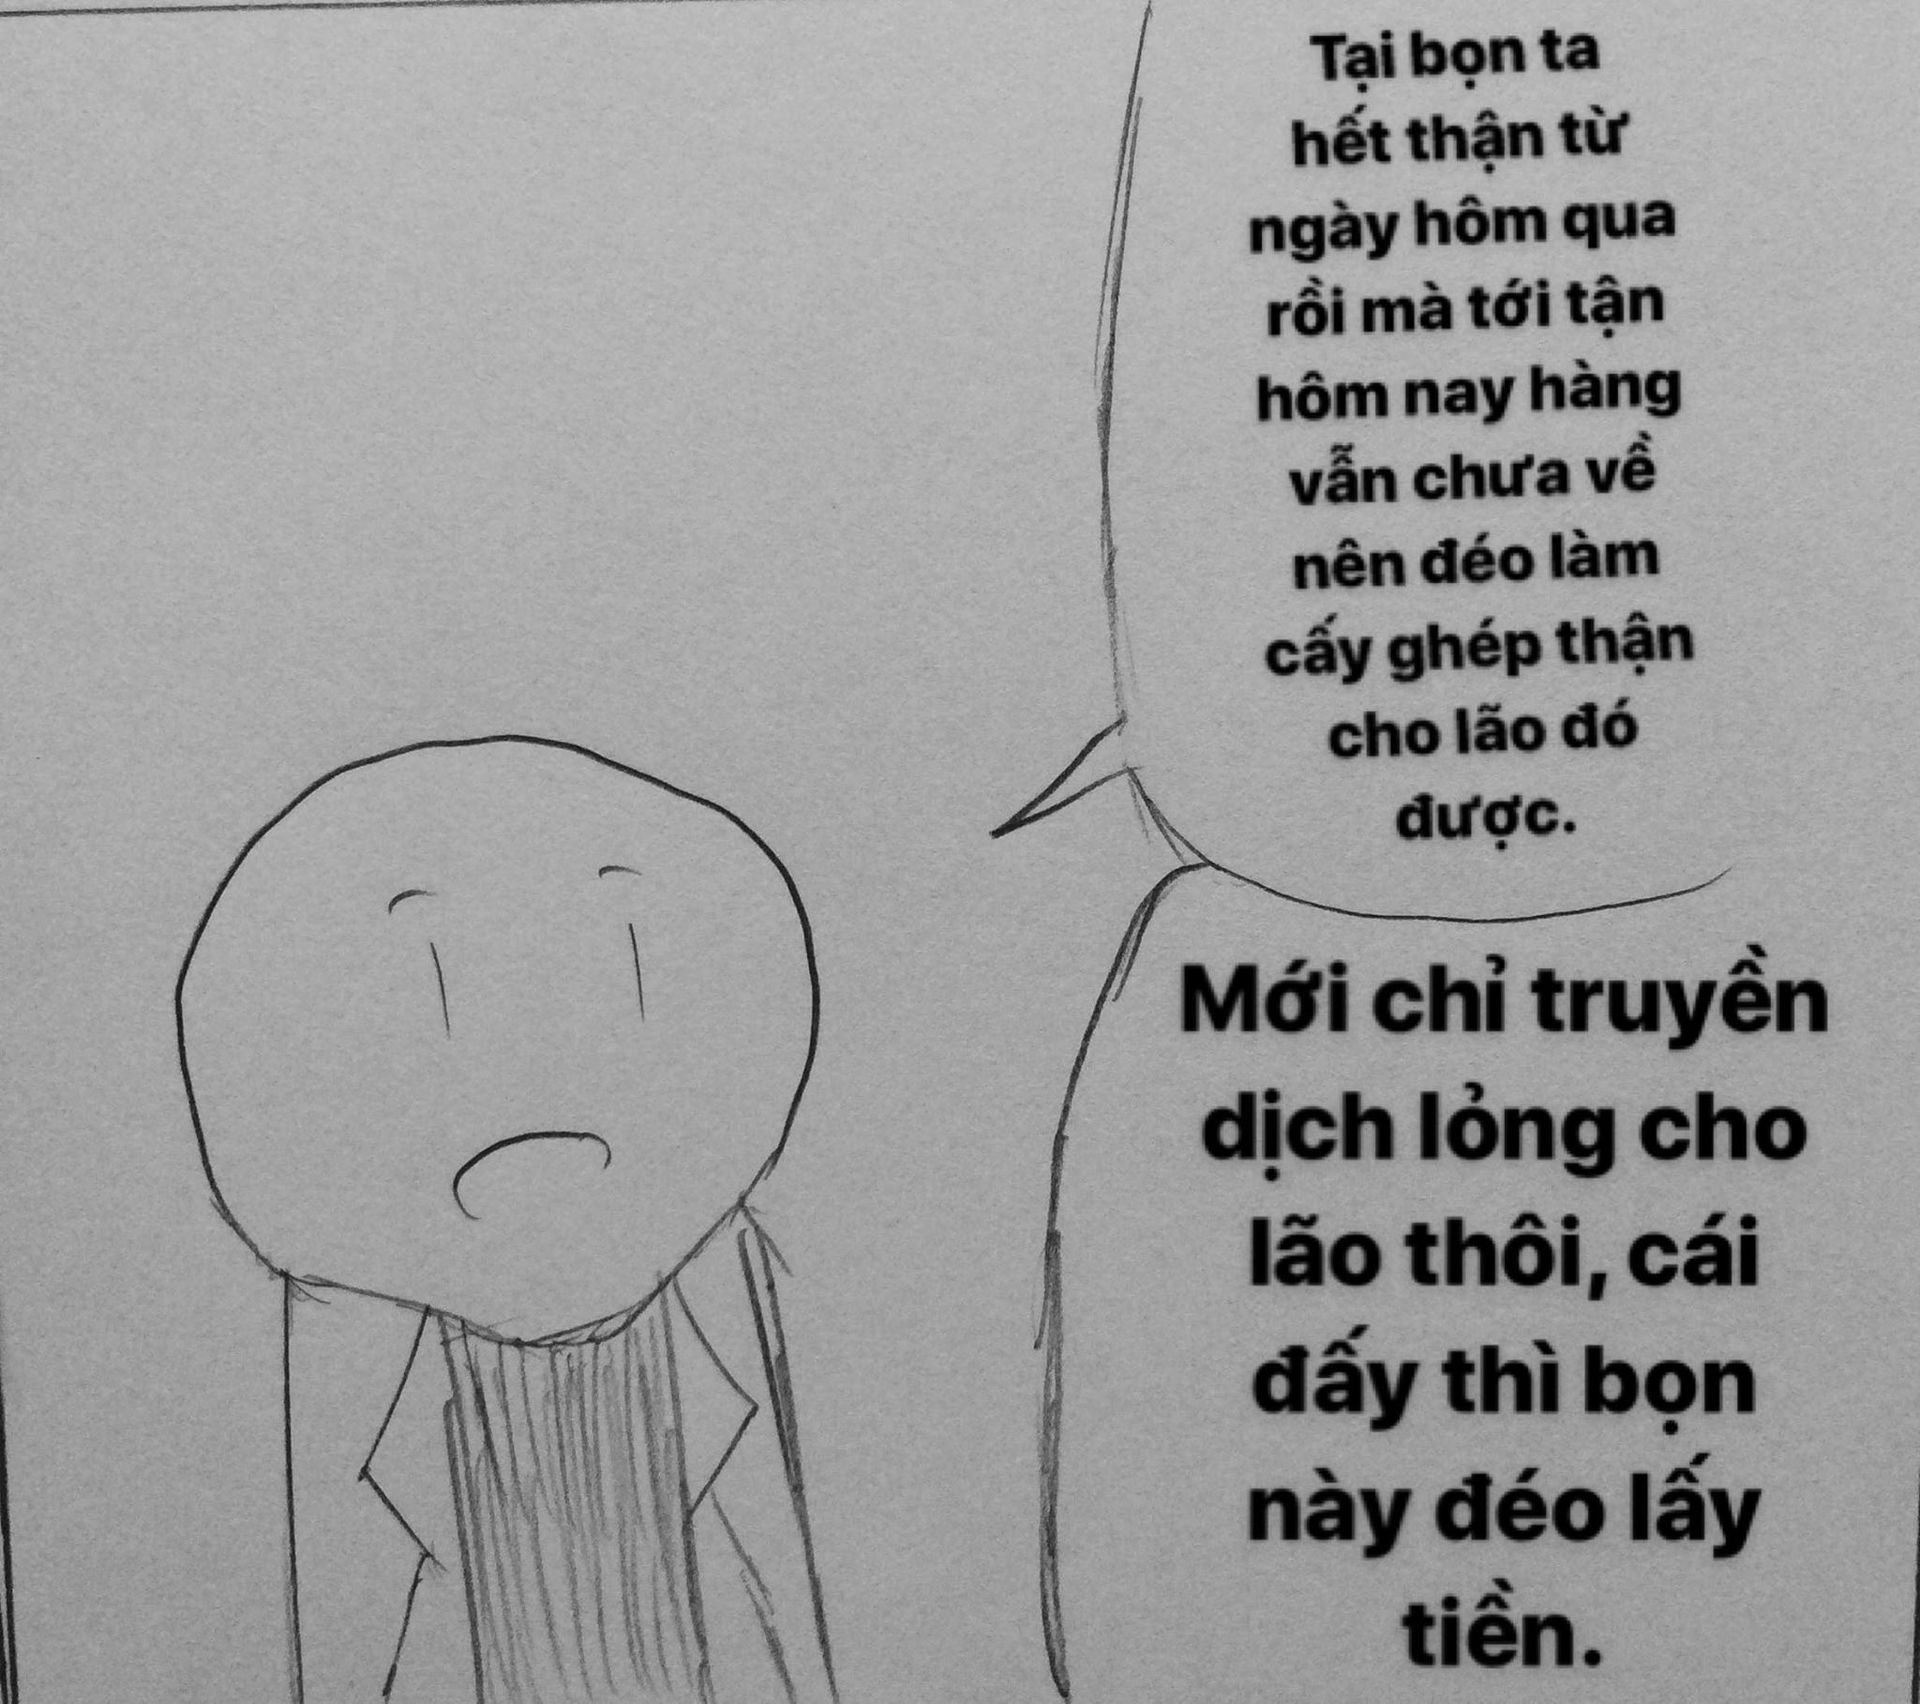 Tại bọn ta
hết thận từ
ngày hôm qua
rồi mà tới tận
hôm nay hàng
vẫn chưa về
nên đéo làm
cấy ghép thận
cho lão đó
được.
Mới chỉ truyền
dịch lỏng cho
lão thôi, cái
đấy thì bọn
này đéo lấy
tiền.